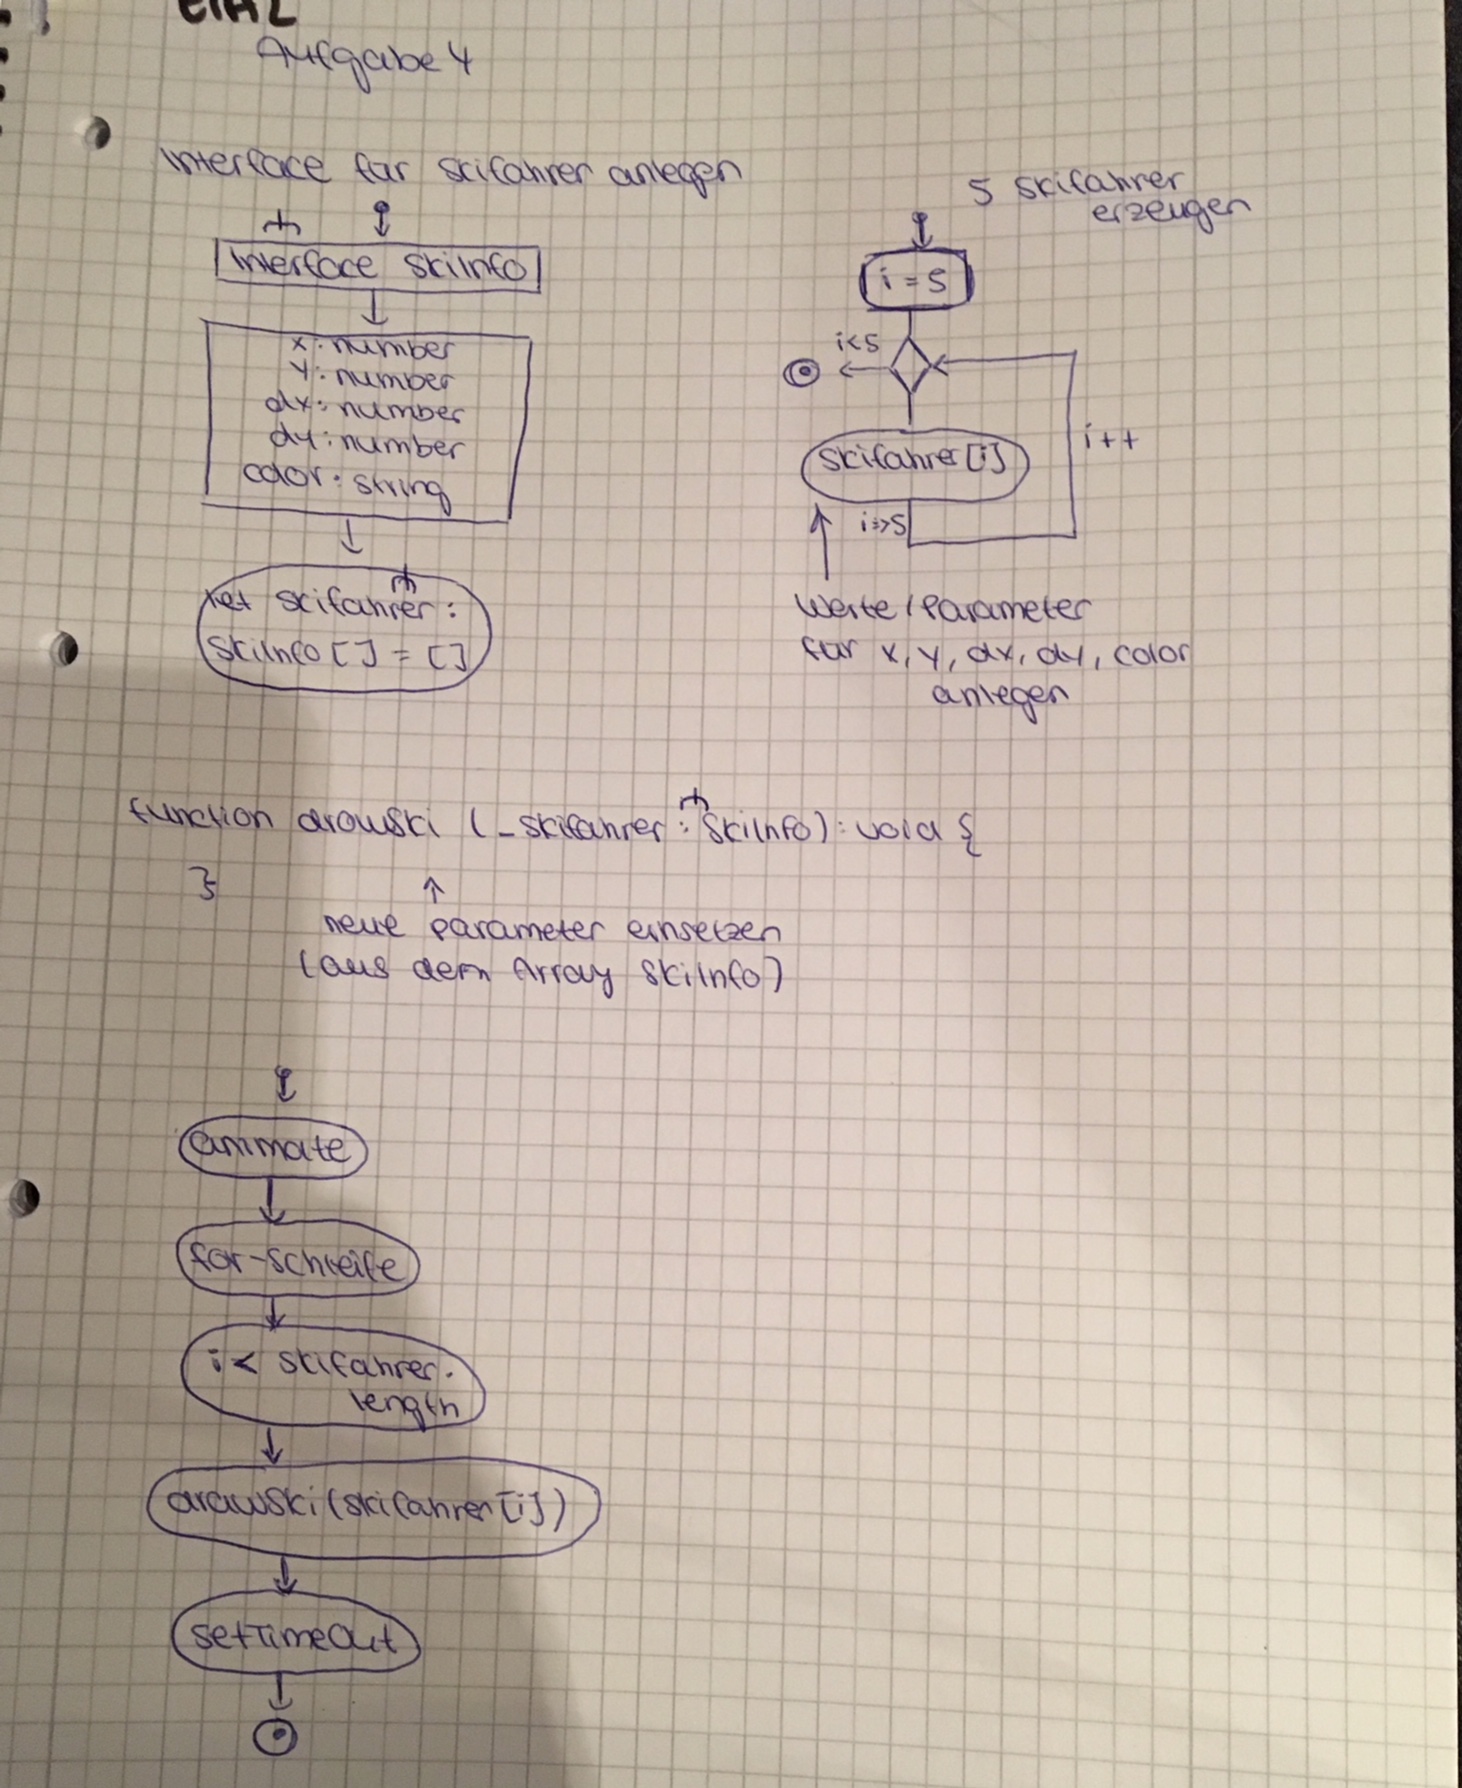 EIA2
Aufgabe 4
Interface für Skifahrer anlegen
Interface SkiInfo
x: number
y: number
dx: number
dy: number
color: string
let skifahrer:
SkiInfo [] = []
5 Skifahrer
erzeugen
i = 5
i<5
skifahrer [i]
i++
Werte/Parameter
für x, y, dx, dy, color
anlegen
function drawSki (_skifahrer: SkiInfo): void {
}
neue Parameter einsetzen
(aus dem Array SkiInfo)
animate
for-Schleife
i < skifahrer.
length
drawSki(skifahrer[i])
setTimeOut